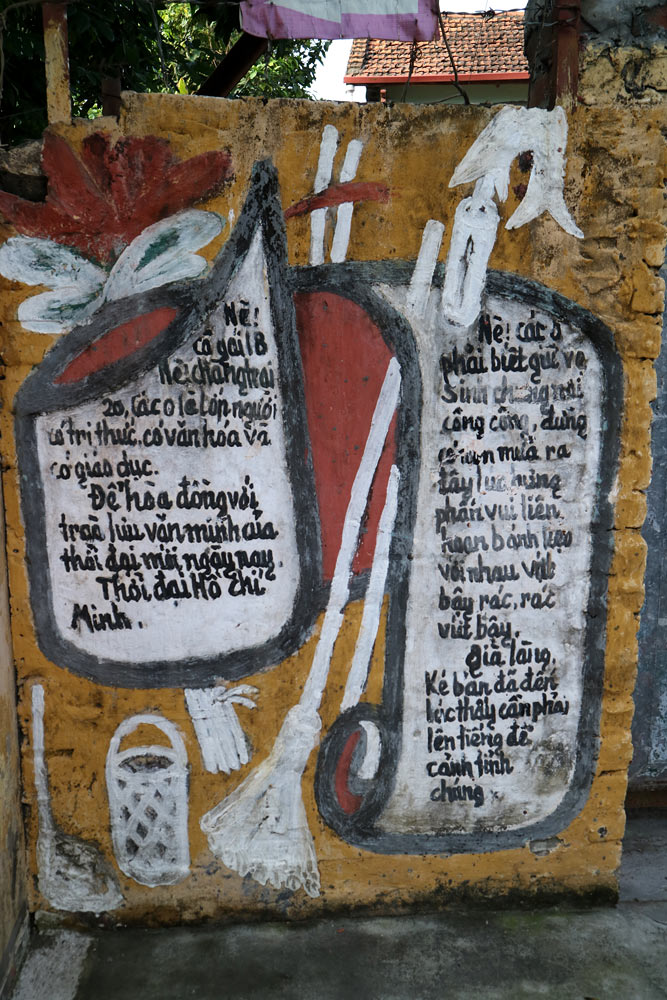 Nè!
cô gái 18
Nè! chàng trai
20, Các o lè lớp người
có tri thức, có văn hóa và
có giáo dục.
Để hòa đồng với
trào lưu văn minh của
thời đại mới ngày nay.
Thời đại Hồ Chí
Minh.
Nè! các o
phải biết giữ vệ
Sinh chung nơi
công cộng, đừng
mưa ra
tây lục hứng
phấn vui liên
hoan bánh kẹo
với nhau vứt
bậy rác, rác
vứt bậy,
già làng,
Kẻ bản đã đến
lúc thấy cần phải
lên tiếng để
cảnh tỉnh
chăng